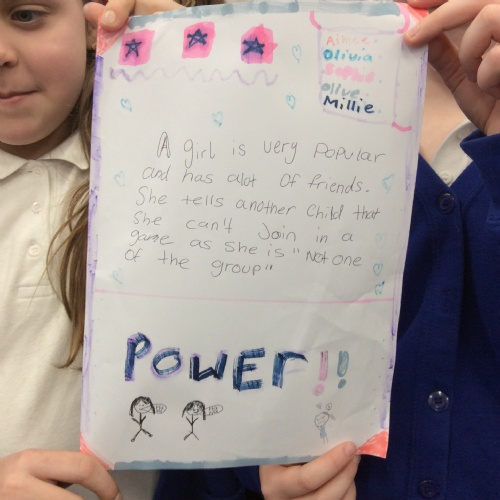 Aimee.
Olivia
Sophie
Olive
Millie.
A girl is very popular
and has alot of friends.
She tells another child that
She can't Join in a
game as she is "Not one
of the group"
POWER!!